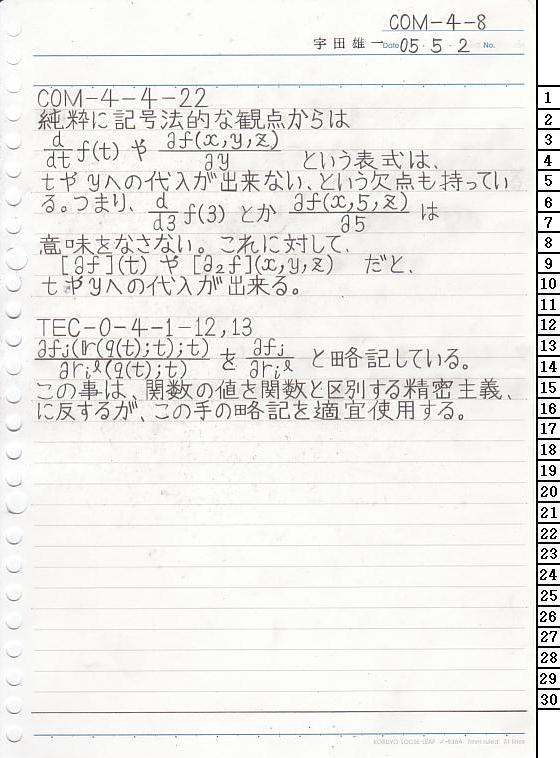 COM-4-8
宇田雄一 Date 05・5・2 No.
COM-4-4-22
純粋に記号法的な観点からは
d/dt f(t) や ∂f(x,y,z)/∂y という表式は、
tやyへの代入が出来ない、という欠点も持ってい
る。つまり、d/d3 f(3) とか ∂f(x,5,z)/∂5 は
意味をなさない。これに対して、
[∂f](t) や [∂₂f](x,y,z) だと、
tやyへの代入が出来る。
TEC-0-4-1-12,13
∂fⱼ(𝕣(q(t);t);t)/∂rᵢˡ(q(t);t) を ∂fⱼ/∂rᵢˡ と略記している。
この事は、関数の値を関数と区別する精密主義、
に反するが、この手の略記を適宜使用する。
KOKUYO LOOSE-LEAF ノ-836A 7mm ruled 31 lines
1
2
3
4
5
6
7
8
9
10
11
12
13
14
15
16
17
18
19
20
21
22
23
24
25
26
27
28
29
30